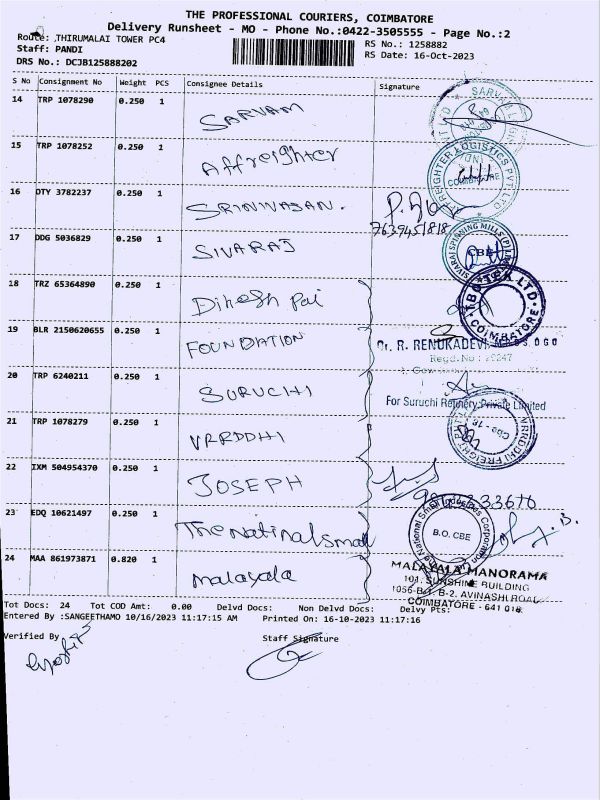 THE PROFESSIONAL COURIERS, COIMBATORE
Delivery Runsheet - MO - Phone No.:0422-3505555 - Page No.:2
Route: ,THIRUMALAI TOWER PC4
RS No.: 1258882
Staff: PANDI
RS Date: 16-Oct-2023
DRS No.: DCJB125888202
S No Consignment No Weight PCS Consignee Details Signature
14 TRP 1078290 0.250 1 SARVAM
15 TRP 1078252 0.250 1 Affreighter
16 DTY 3782237 0.250 1 SRINIVASAN.
7639451818
17 DDG 5036829 0.250 1 SIVARAJ
18 TRZ 65364890 0.250 1 Dinesh Pai
19 BLR 2150620655 0.250 1 FOUNDATION
Dr. R. RENUKADEVI
Regd.No :
20 TRP 6240211 0.250 1 SURUCHI
For Suruchi Refinery Private Limited
21 TRP 1078279 0.250 1 VRRDDHI
22 IXM 504954370 0.250 1 JOSEPH
23 EDQ 10621497 0.250 1 The Natinal Small
B.O. CBE
24 MAA 861973871 0.820 1 malayala
MALAYALA MANORAMA
101, SUNSHINE BUILDING
1056-B-1, B-2, AVINASHI ROAD
COIMBATORE - 641 018.
Tot Docs: 24 Tot COD Amt: 0.00 Delvd Docs: Non Delvd Docs: Delvy Pts:
Entered By :SANGEETHAMO 10/16/2023 11:17:15 AM Printed On: 16-10-2023 11:17:16
Verified By
Staff Signature